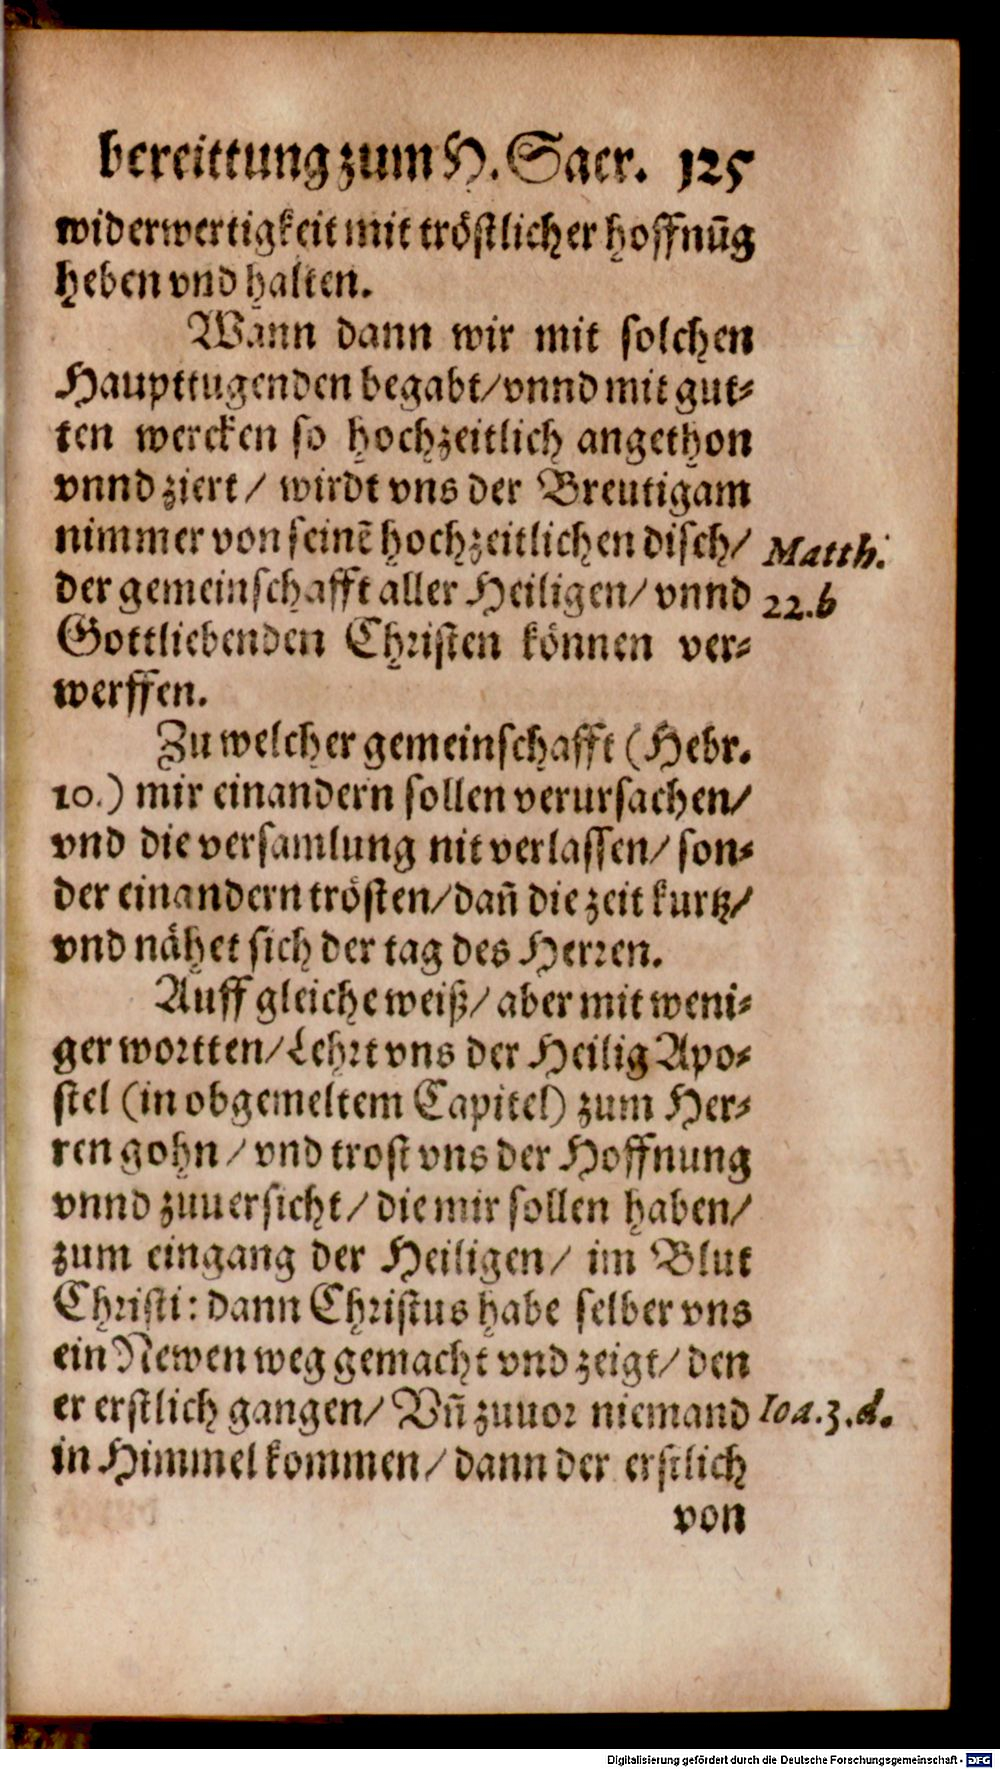 bereittung zum H. Sacr. 125
widerwertigkeit mit tröstlicher hoffnūg
heben vnd halten.
Wann dann wir mit solchen
Haupttugenden begabt/ vnnd mit gut-
ten wercken so hochzeitlich angethon
vnnd ziert/ wirdt vns der Breutigam
nimmer von seinē hochzeitlichen disch/ Matth.
der gemeinschafft aller Heiligen/ vnnd 22.b
Gottliebenden Christen können ver-
werffen.
Zu welcher gemeinschafft (Hebr.
10.) mir einandern sollen verursachen/
vnd die versamlung nit verlassen/ son-
der einandern trösten/ dañ die zeit kurtz/
vnd nähet sich der tag des Herren.
Auff gleiche weiß/ aber mit weni-
ger wortten/ Lehrt vns der Heilig Apo-
stel (in obgemeltem Capitel) zum Her-
ren gohn/ vnd trost vns der Hoffnung
vnnd zuuersicht/ die mir sollen haben/
zum eingang der Heiligen/ im Blut
Christi: dann Christus habe selber vns
ein Newen weg gemacht vnd zeigt/ den
er erstlich gangen/ Vñ zuuor niemand Ioa.3.d.
in Himmel kommen/ dann der erstlich
von
Digitalisierung gefördert durch die Deutsche Forschungsgemeinschaft - DFG